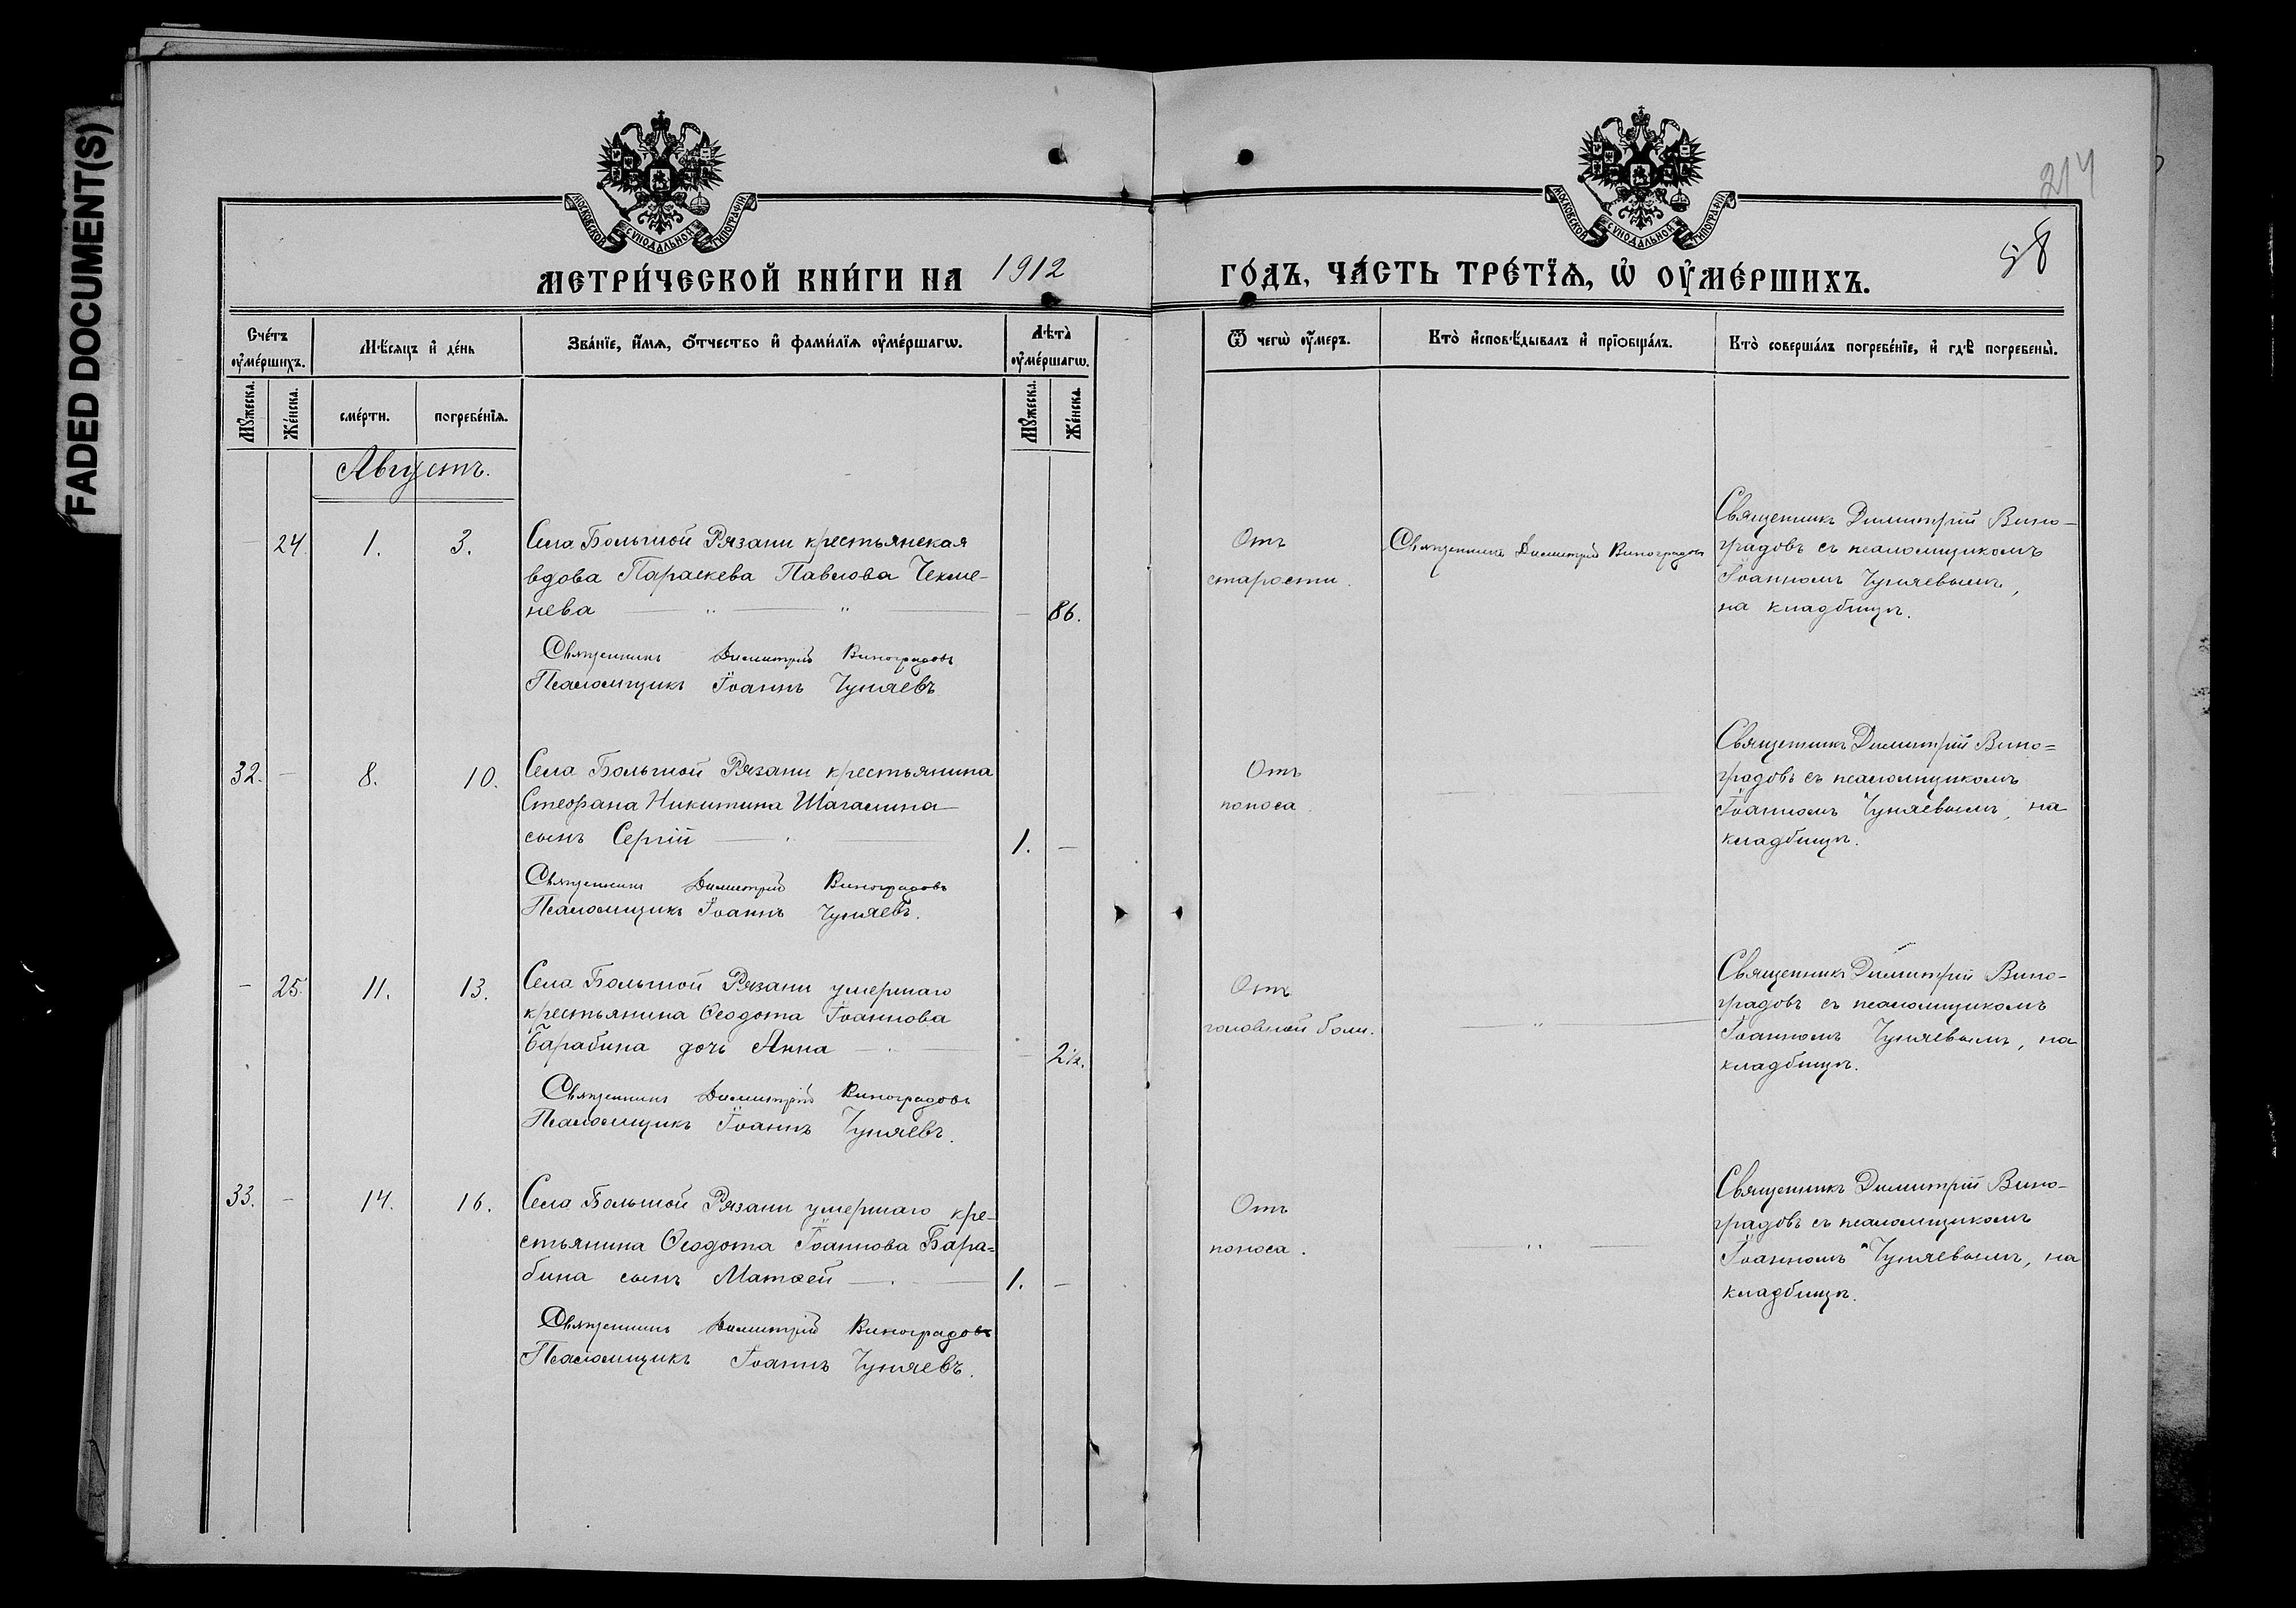 FADED DOCUMENT(S)
МОСКОВСКОЙ СУНОДАЛЬНОЙ ТИПОГРАФІИ
МОСКОВСКОЙ СУНОДАЛЬНОЙ ТИПОГРАФІИ
214
58
МЕТРИ́ЧЕСКОЙ КНИ́ГИ НА 1912
ГО́ДЪ, ЧА́СТЬ ТРЕ́ТЇѦ, Ѡ҆ ОУ҆МЕ́РШИХЪ.
Сче́тъ оу҆ме́ршихъ.
Мѣ́сѧцъ и҆ де́нь
Зва́нїе, и҆́мѧ, ѻ҆́тчество и҆ фами́лїѧ оу҆ме́ршагѡ.
Лѣта̀ оу҆ме́ршагѡ.
Ѿ чегѡ̀ оу҆́меръ.
Кто̀ и҆сповѣ́дывалъ и҆ прїѻбща́лъ.
Кто̀ соверша́лъ погребе́нїе, и҆ гдѣ̀ погребены̀.
Мꙋ́жеска.
Же́нска.
сме́рти.
погребе́нїѧ.
Мꙋ́жеска.
Же́нска.
Августъ.
— 24. 1. 3.
Села Большой Рязани крестьянская
вдова Параскева Павлова Чекме-
нева — " — " —
— 86.
Священникъ Димитрій Виноградовъ
Псаломщикъ Іоаннъ Чуняевъ
Отъ
старости.
Священникъ Димитрій Виноградовъ
Священникъ Димитрій Вино-
градовъ съ псаломщикомъ
Іоанномъ Чуняевымъ,
на кладбищѣ.
32. — 8. 10.
Села Большой Рязани крестьянина
Стефана Никитина Шагалина
сынъ Сергій —
1. —
Священникъ Димитрій Виноградовъ
Псаломщикъ Іоаннъ Чуняевъ.
Отъ
поноса.
— " —
Священникъ Димитрій Вино=
градовъ съ псаломщикомъ
Іоанномъ Чуняевымъ, на
кладбищѣ.
— 25. 11. 13.
Села Большой Рязани умершаго
крестьянина Ѳеодота Іоаннова
Барабина дочь Анна —
— 2½.
Священникъ Димитрій Виноградовъ
Псаломщикъ Іоаннъ Чуняевъ.
Отъ
головной боли.
— " —
Священникъ Димитрій Вино-
градовъ съ псаломщикомъ
Іоанномъ Чуняевымъ, на
кладбищѣ.
33. — 14. 16.
Села Большой Рязани умершаго кре-
стьянина Ѳеодота Іоаннова Бара=
бина сынъ Матѳей —
1. —
Священникъ Димитрій Виноградовъ
Псаломщикъ Іоаннъ Чуняевъ.
Отъ
поноса.
— " —
Священникъ Димитрій Вино-
градовъ съ псаломщикомъ
Іоанномъ Чуняевымъ, на
кладбищѣ.